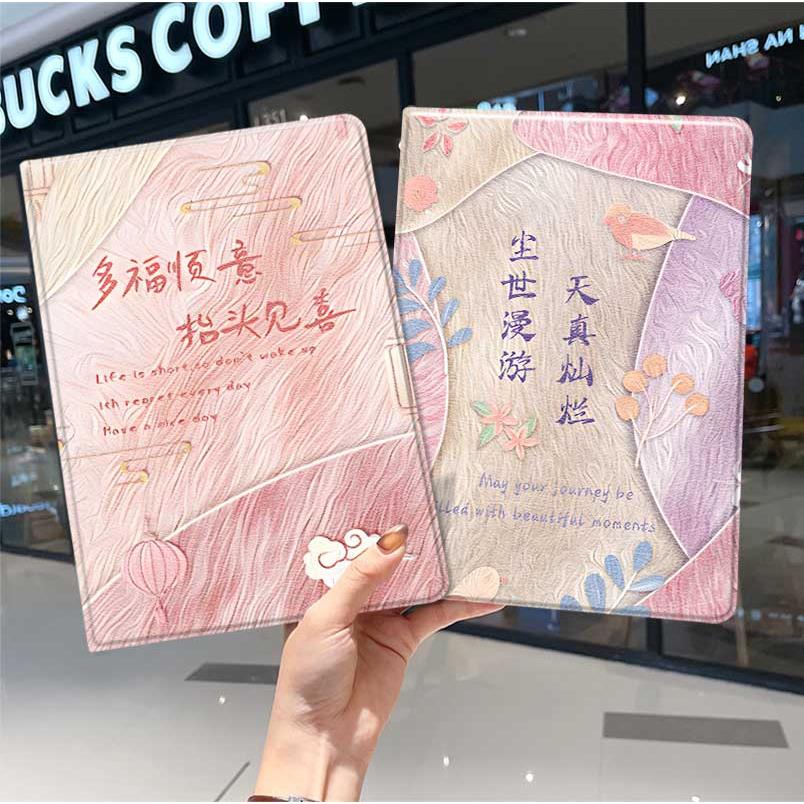 UCKS COFF
NAHS AN H
多福顺意
抬头见喜
Life is short, so don't wake up
1th regret every day
Have a nice day
尘世漫游
天真灿烂
May your journey be
lled with beautiful moments